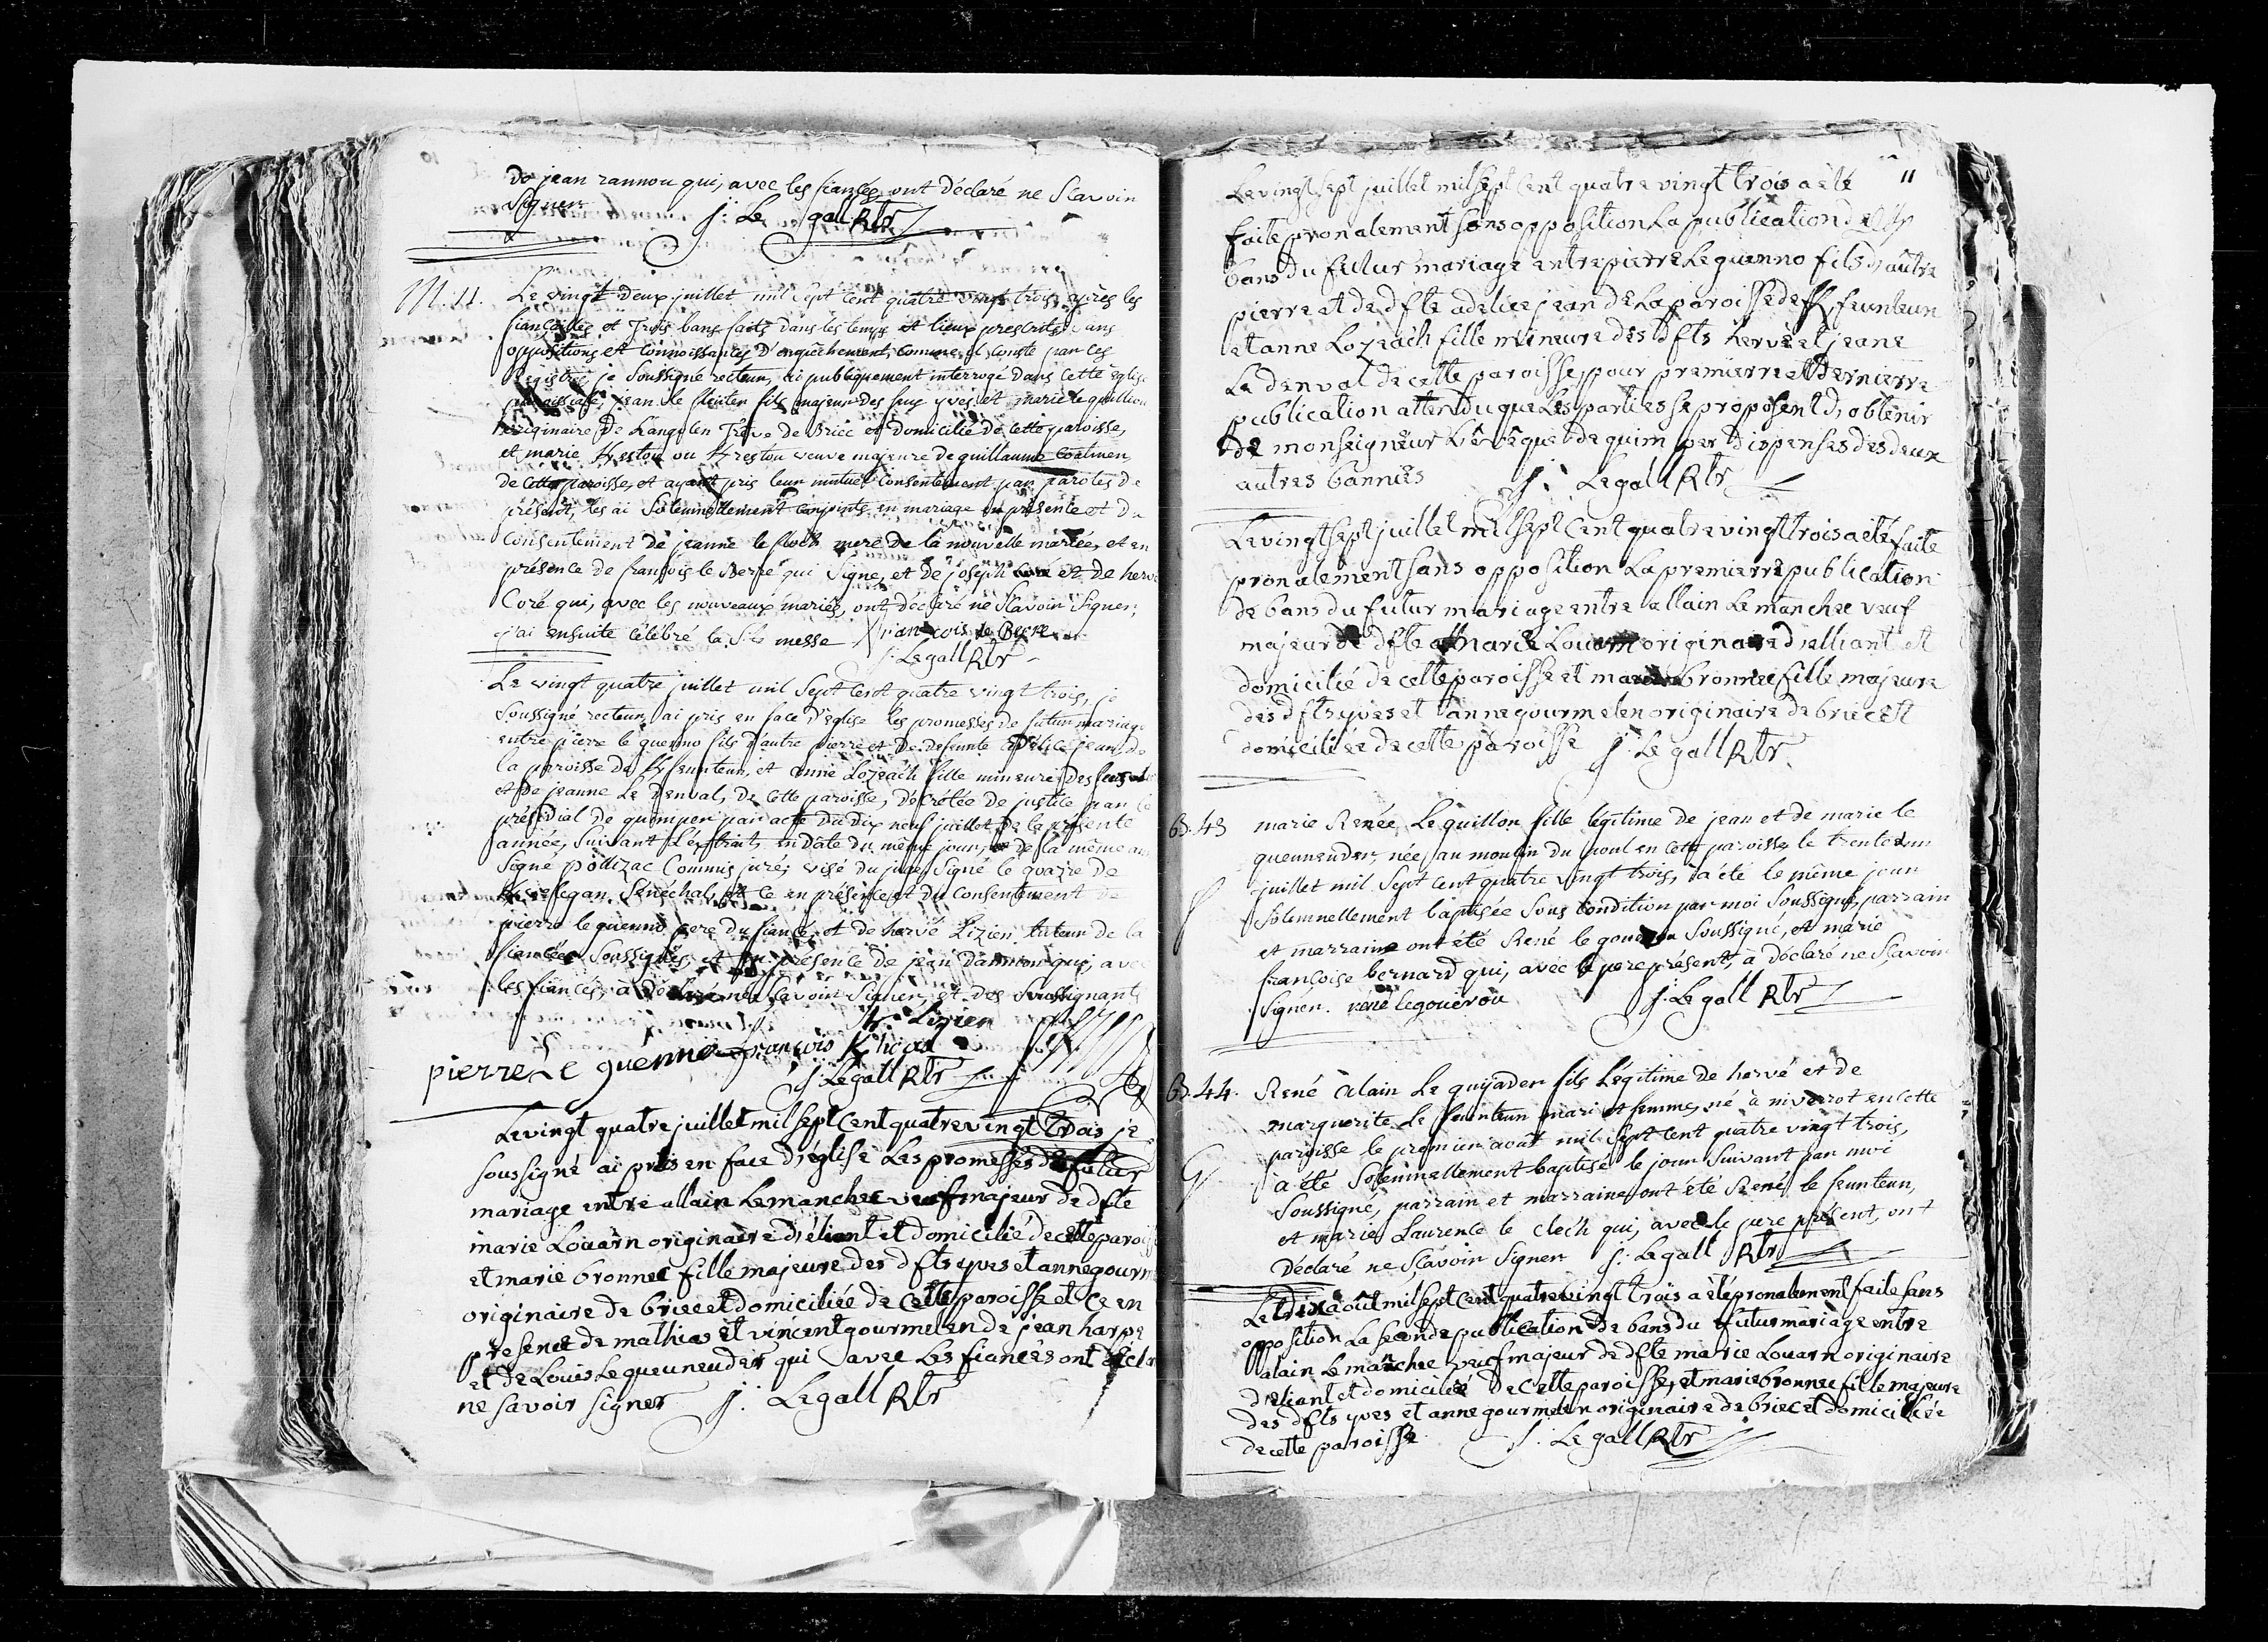 de jean rannou qui, avec les fiancés, ont déclaré ne Scavoir
Signer J: Le gall Rtr
M. 11. Le vingt deux juillet mil Sept Cent quatre vingt trois, après les
fiançailles et Trois bans faits dans les temps et lieux prescrits Sans
oppositions et Connoissances d'empêchement, Comme il Conste par ces
Registres je Soussigné recteur, ai publiquement interrogé dans Cette église
paroissiale, jean le fleuter fils majeur des feux yves et marie le quillou
originaire de Langolen Trève de Briec et domicilié de Cette paroisse,
et marie ou veuve majeure de guillaume
de Cette paroisse, et ayant pris leur mutuel Consentement par paroles de
présent, les ai Solemnellement Conjoints en mariage en présence et du
Consentement de jeanne le floch mere de la nouvelle mariée, et en
présence de françois le Berre qui Signe, et de joseph et de hervé
Coré qui, avec les nouveaux mariés, ont déclaré ne Scavoir Signer;
j'ai ensuite Célébré la Ste messe françois le Berre
J: Le gall Rtr
Le vingt quatre juillet mil Sept Cent quatre vingt trois, je
Soussigné recteur, ai pris en face d'Eglise les promesses de futur mariage
entre pierre le guenno fils d'autre pierre et de defunte adelice jean de
la paroisse de feunteun, et anne Lozeach fille mineure des feus
et de jeanne Le denval, de Cette paroisse, décrétée de justice par le
présidial de quimper par acte du dix neuf juillet de la présente
année, Suivant L'extrait, en date du même jour, de la même
Signé pollizac Commis juré, visé du juge Signé le goazre de
Senéchal, et Ce en présence et du Consentement de
pierre le guenno pere du fiancé, et de hervé Lizien tuteur de la
fiancée Soussignés, et en présence de jean dannion qui, avec
les fiancés, a déclaré ne Scavoir Signer, et des Soussignants
Lizien
pierre Le guenno françois
J: Le gall Rtr
Le vingt quatre juillet mil sept Cent quatre vingt trois je
soussigné ai pris en face d'église Les promesses de futur
mariage entre allain Lemanchec veuf majeur de dfte
marie Louarn originaire d'éliant et domicilié de cette paroisse
et marie bronnec fille majeure des dfts yves et anne gourm
originaire de briec et domiciliée de cette paroisse et ce en
presence de mathias et vincent gourmelen de jean harpe
et de Louis Lequeuneuder qui avec Les fiancés ont déclaré
ne savoir signer J: Le gall Rtr
11
Le vingt sept juillet mil Sept Cent quatre vingt trois a été
faite pronalement sans opposition La publication de
bans du futur mariage entre pierre Leguenno fils d'autre
pierre et de dfte adelice jean de La paroisse de feunteun
et anne Lozeach fille mineure des dfts hervé et jeane
Le denval de cette paroisse, pour premierre et dernierre
publication attendu que Les parties se proposent d'obtenir
de monseigneur L'évêque de quimper dispenses des deux
autres bannies J: Le gall Rtr
Le vingt sept juillet mil Sept Cent quatre vingt trois a été faite
pronalement sans opposition La premierre publication
de bans du futur mariage entre allain Le manchec veuf
majeur de dfte Marie Louarn originaire d'elliant et
domicilié de cette paroisse et marie bronnec fille majeure
des dfts yves et anne gourmelen originaire de briec et
domiciliée de cette paroisse J: Le gall Rtr
B. 43 marie Renée, Le quillou fille légitime de jean et de marie le
queuneuder, née au moulin du poul en cette paroisse le trente un
juillet mil Sept Cent quatre vingt trois, a été le même jour
Solemnellement baptisée Sous Condition par moi Soussigné, parrain
et marraine ont été René le gouerou Soussigné, et marie
françoise bernard qui, avec le pere présent, a déclaré ne Scavoir
Signer. rene legouerou J: Le gall Rtr
B. 44. René alain Le quijader fils Légitime de hervé et de
marguerite Le feunteun mari et femme, né à niverrot en cette
paroisse le premier août mil Sept Cent quatre vingt trois,
a été Solemnellement baptisé le jour Suivant par moi
Soussigné, parrain et marraine ont été René le feunteun,
et marie Laurence le clech qui, avec le pere présent, ont
déclaré ne Scavoir Signer J: Le gall Rtr
Le dix août mil Sept Cent quatre vingt trois a été pronalement faite sans
opposition La seconde publication de bans du futur mariage entre
alain Le manchec veuf majeur de dfte marie Louarn originaire
d'eliant et domicilié de Cette paroisse, et marie bronnec fille majeure
des dfts yves et anne gourmelen originaire de briec et domiciliée
de cette paroisse J: Le gall Rtr